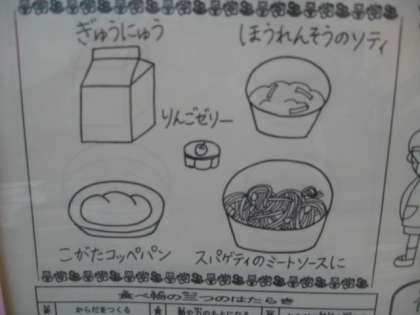 ぎゅうにゅう
ほうれんそうのソティ
りんごゼリー
こがたコッペパン
スパゲティのミートソースに
食べ物の三つのはたらき
からだをつくる